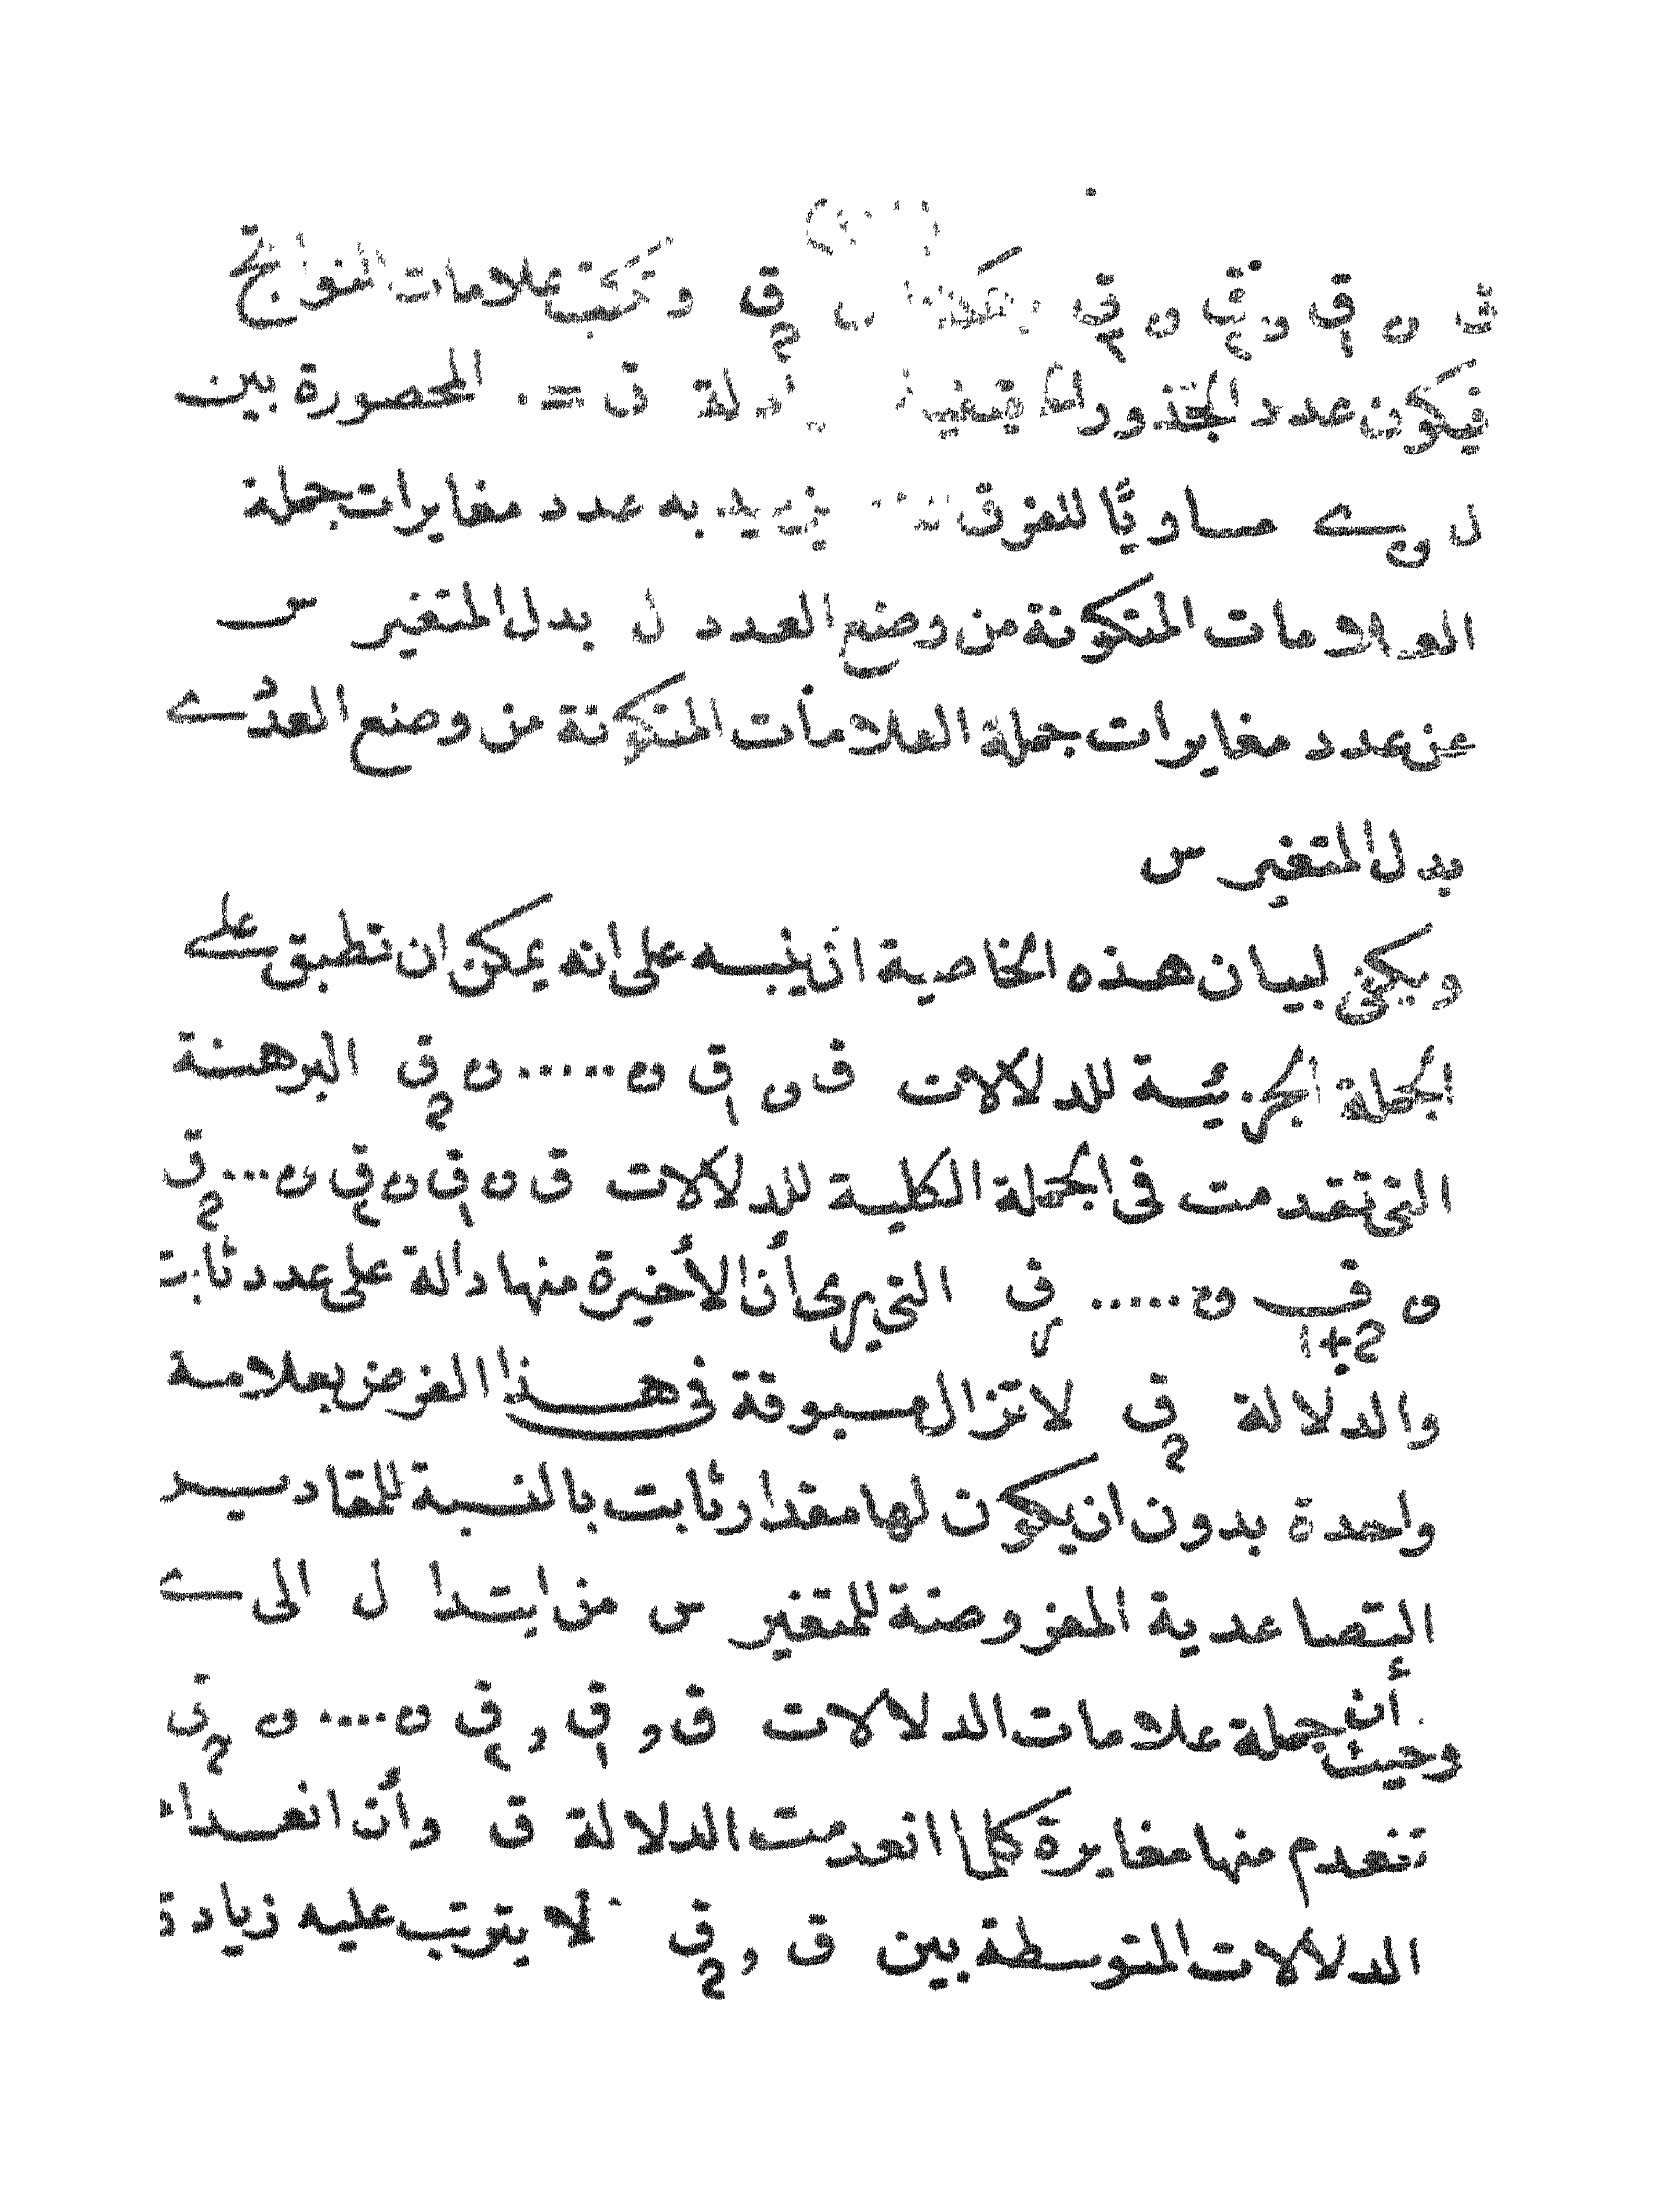 ق و ق١ و ق٢ و ق٣ و ق2 وتكتب علامات النواتج
فيكون عدد الجذور الحقيقية دلة ق = ٠ المحصورة بين
ل و ے مساويًّا للفرق يزيد به عدد مغايرات جملة
العلامات المتكونة من وضع العدد ل بدل المتغير س
عن عدد مغايرات جملة العلامات المتكونة من وضع العدد ے
بدل المتغير س
ويكفى لبيان هذه الخاصية ان ينبه على انه يمكن ان تطبق على
الجملة الجزئية للدلالات ق و ق١ و ..... و ق2 البرهنة
التى تقدمت فى الجملة الكلية للدلالات ق و ق١ و ق٢ و ... ق2
و ق2+١ و ..... قر التى يرى أن الأخيرة منها دالة على عدد ثابت
والدلالة ق2 لا تزال مسبوقة فى هذا الفرض بعلامة
واحدة بدون ان يكون لها مقدار ثابت بالنسبة للمقادير
التصاعدية المفروضة للمتغير س من ابتدا ل الى ے
وحيث أن جملة علامات الدلالات ق و ق١ و ق٢ و .... و ق2
تنعدم منها مغايرة كلما انعدمت الدلالة ق وأن انعدام
الدلالات المتوسطة بين ق و ق2 لا يترتب عليه زيادة